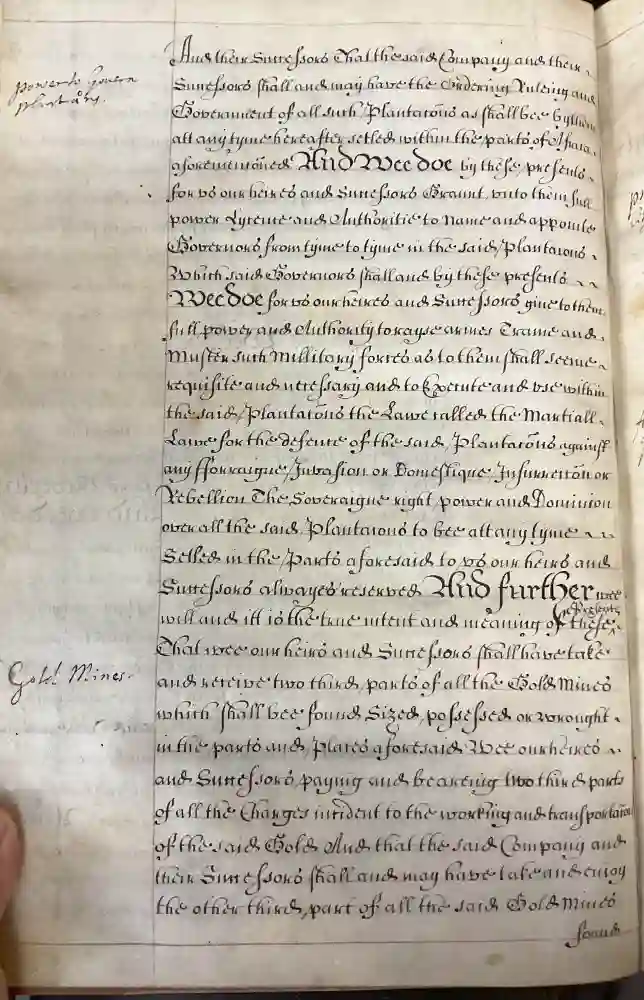 And their Successors That the said Company and their
power to Govern
plantac̃ons.
Successors shall and may have the Ordering Ruleing and
Goverment of all such Plantac̃ons as shall bee by them
att any tyme hereafter setled within the parts of Africa
aforementiõned And Wee doe by these presents
for vs our heires and Successors Graunt vnto them full
power Lycence and Authoritie to Name and appointe
Governors from tyme to tyme in the said Plantac̃ons
Which said Governors shall and by these presents
Wee doe for vs our heires and Successors give to them
full power and Authority to rayse armes Traine and
Muster such Millitary forces as to them shall seeme
requisite and necessary and to Execute and vse within
the said Plantac̃ons the Lawe called the Martiall
Lawe for the defence of the said Plantac̃ons against
any fforraigne Invasion or Domestique Insurrecc̃on or
Rebellion The Soveraigne right power and Dominion
over all the said Plantac̃ons to bee att any tyme
Setled in the Parts aforesaid to vs our heirs and
Successors alwayes reserved And further wee
will and itt is the true intent and meaning of these Presents
That wee our heirs and Successors shall have take
Gold Mines.
and receive two third parts of all the Gold Mines
which shall bee found Sized possessed or wrought
in the parts and Places aforesaid Wee our heires
and Successors paying and beareing two third parts
of all the Charges incident to the working and transportac̃on
of the said Gold And that the said Company and
their Successors shall and may have take and enioy
the other third part of all the said Gold Mines
found